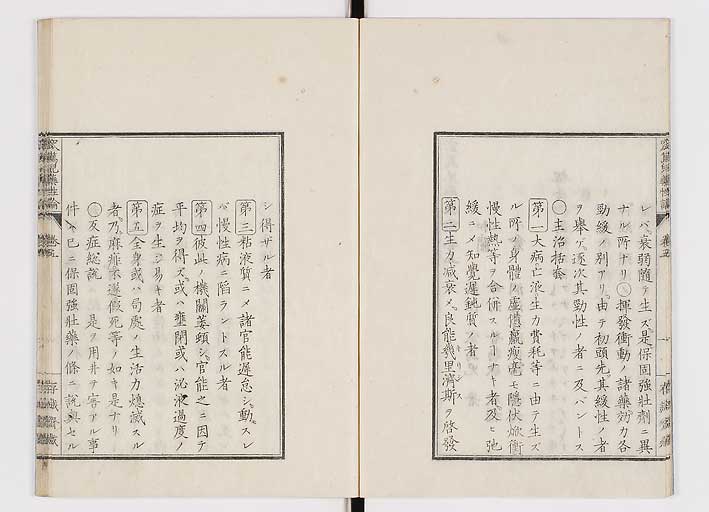 レバ衰弱隨テ生ズ是保固強壯劑ニ異
ナル所ナリ○揮發衝動ノ諸藥効力各
勁緩ノ別アリ由テ初頭先其緩性ノ者
ヲ擧ゲ逐次其勁性ノ者ニ及バントス
○主治括套
第一大病亡液生力費耗等ニ由テ生ズ
ル所ノ身體ノ虚憊羸瘦毫モ隱伏焮衝
慢性熱等ヲ合併スルナキ者及ヒ弛
緩ニメ知覺遲鈍質ノ者
第二生力減衰メ良能幾里濟斯ヲ啓發
シ得ザル者
第三粘液質ニメ諸官能遲怠シ動スレ
バ慢性病ニ陷ラントスル者
第四彼此ノ機關萎頓シ官能之ニ因テ
平均ヲ得ズ或ハ壅閉或ハ泌液過度ノ
症ヲ生シ易キ者
第五全身或ハ局處ノ生活力熄滅スル
者乃麻痺不遂假死等ノ如キ是ナリ
○反症総説 是ヲ用井テ害アル事
件ハ已ニ保固強壯藥ノ條ニ説與セル